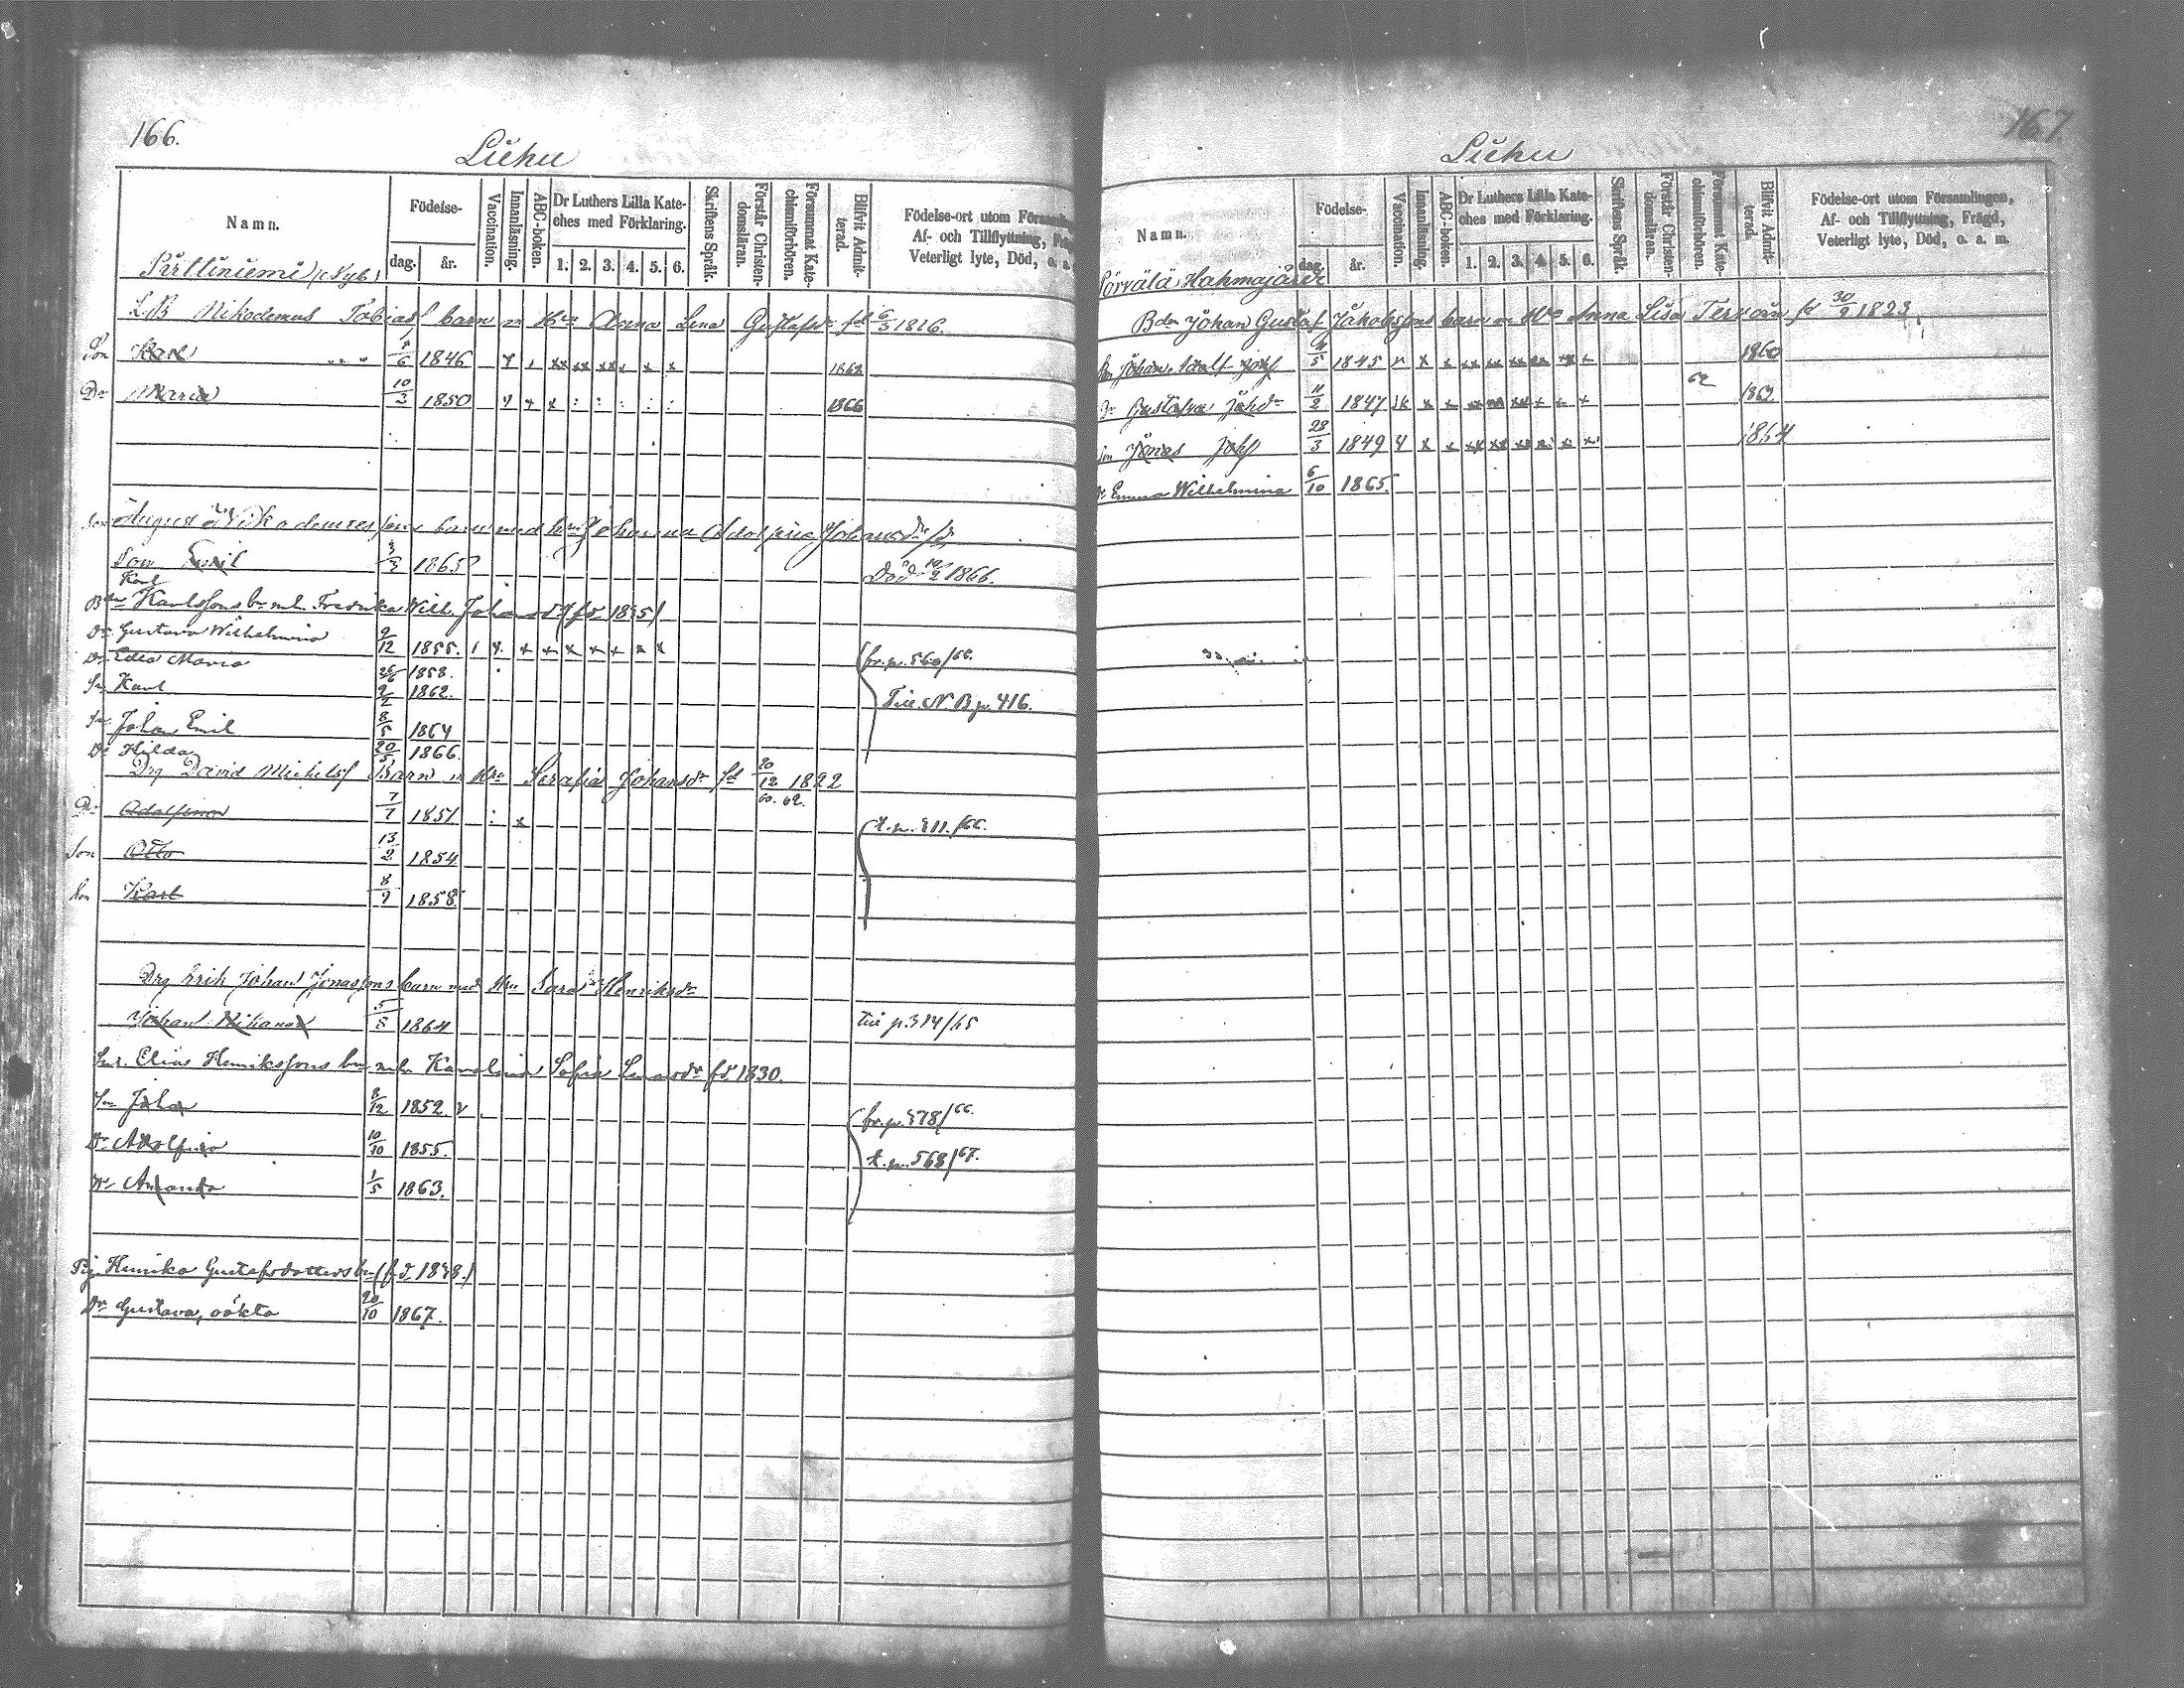 166.
Luhu
Namn.
Födelse-
dag.
år.
Vaccination.
Innanläsning.
ABC-boken.
Dr Luthers Lilla Kate-
ches med Förklaring.
1. 2. 3. 4. 5. 6.
Skriftens Språk.
Förstår Christen-
domsläran.
Försummat Kate-
chismiförhören.
Blifvit Admit-
terad.
Födelse-ort utom Församlin
Af- och Tillflyttning, Fr
Veterligt lyte, Död, o. a.
Pirttiniemi (Nyb.)
L.B Nikodemus Tobiasf barn m Hu Anna Lena Gustafsdr fd 6/3 1816.
Son Karl 6 1846 1862
Dr Maria 10/3 1850 1866
Son August Nikodemussons barn med hu Johanna Adolfina
Son Emil 1865 Död 1866.
Bdn Karl Karlssons bn m h. Fredrika Wilh. Johansdr
Dr Gustava Wilhelmina 9/12 1855. fr. p. 560/66.
Dr Edla Maria 1858.
Sn Karl 2/2 1862. Till N B p. 416.
Sn Johan Emil 8/5 1864
Dr Hilda 20/5 1866.
Drg David Michelsf Barn m Hu Serafia Johansdr fd 20/12 1822
60. 62.
Dr Adolfina 7/7 1851 t. p. 311./66.
Son Otto 13/2 1854
Son Karl 8/9 1858
Drg Erik Johan Jonassons barn med Hu Sara Henriksdr
Johan Nikanor 5/8 1864 till p. 314/65
Elias Henrikssons bn m h. Karolina Sofia fd 1830.
Sn Joha 8/12 1852. fr. p. 378/66.
Dr Adolfina 10/10 1855. t. p. 568/67.
Dr Amanda 1/5 1863.
Pig. Henrika Gustafsdotters bn
Dr Gustava, oäkta 20/10 1867.
167.
Luhu
Namn.
Födelse-
dag.
år.
Vaccination.
Innanläsning.
ABC-boken.
Dr Luthers Lilla Kate-
ches med Förklaring.
1. 2. 3. 4. 5. 6.
Skriftens Språk.
Förstår Christen-
domsläran.
Försummat Kate-
chismiförhören.
Blifvit Admit-
terad.
Födelse-ort utom Församlingen,
Af- och Tillflyttning, Frägd,
Veterligt lyte, Död, o. a. m.
Sorvälä Hahmajärvi
Bdn Johan Gustaf Jakobssons barn m Hu Anna Lisa fd 30/9 1823
Son Johan Adolf Johsf 1845 1860
Dr Gustafva Johdr 11/2 1847 62 1862
Son Jonas Johsf 28/3 1849 1864
Dr Emma Wilhelmina 6/10 1865.